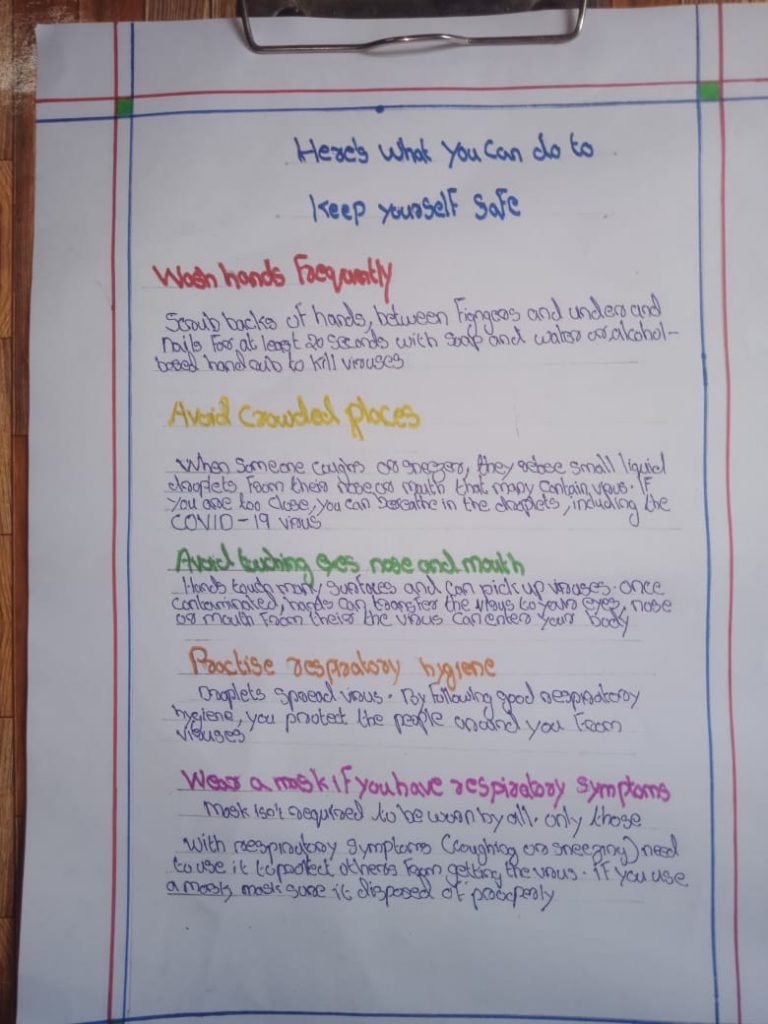 Here's what you can do to
keep yourself safe
Wash hands frequently
Scrub backs of hands, between figngers and under and
nails for at least 20 seconds with soap and water or alcohol-
based hand rub to kill viruses
Avoid crowded places
When someone caughs or sneezes, they small liquid
droplets from their nose or muth that many contain virus. If
you are too close, you can breathe in the droplets, including the
COVID-19 virus
Avoid tuching eyes nose and mouth
Hands touch many surfaces and can pick up viruses. once
contaminated, hands can transfer the virus to your eyes, nose
or mouth from their the virus can enter your body
Practise respiratory hygiene
Droplets spread virus. By following good respiratory
hygiene, you protect the people around you from
viruses
Wear a mask if you have respiratory symptoms
Mask isn't required to be worn by all. only those
with respiratory symptoms (coughing or sneezing) need
to use it to protect others from getting the virus. if you use
a mask, mask sure it disposed of properly